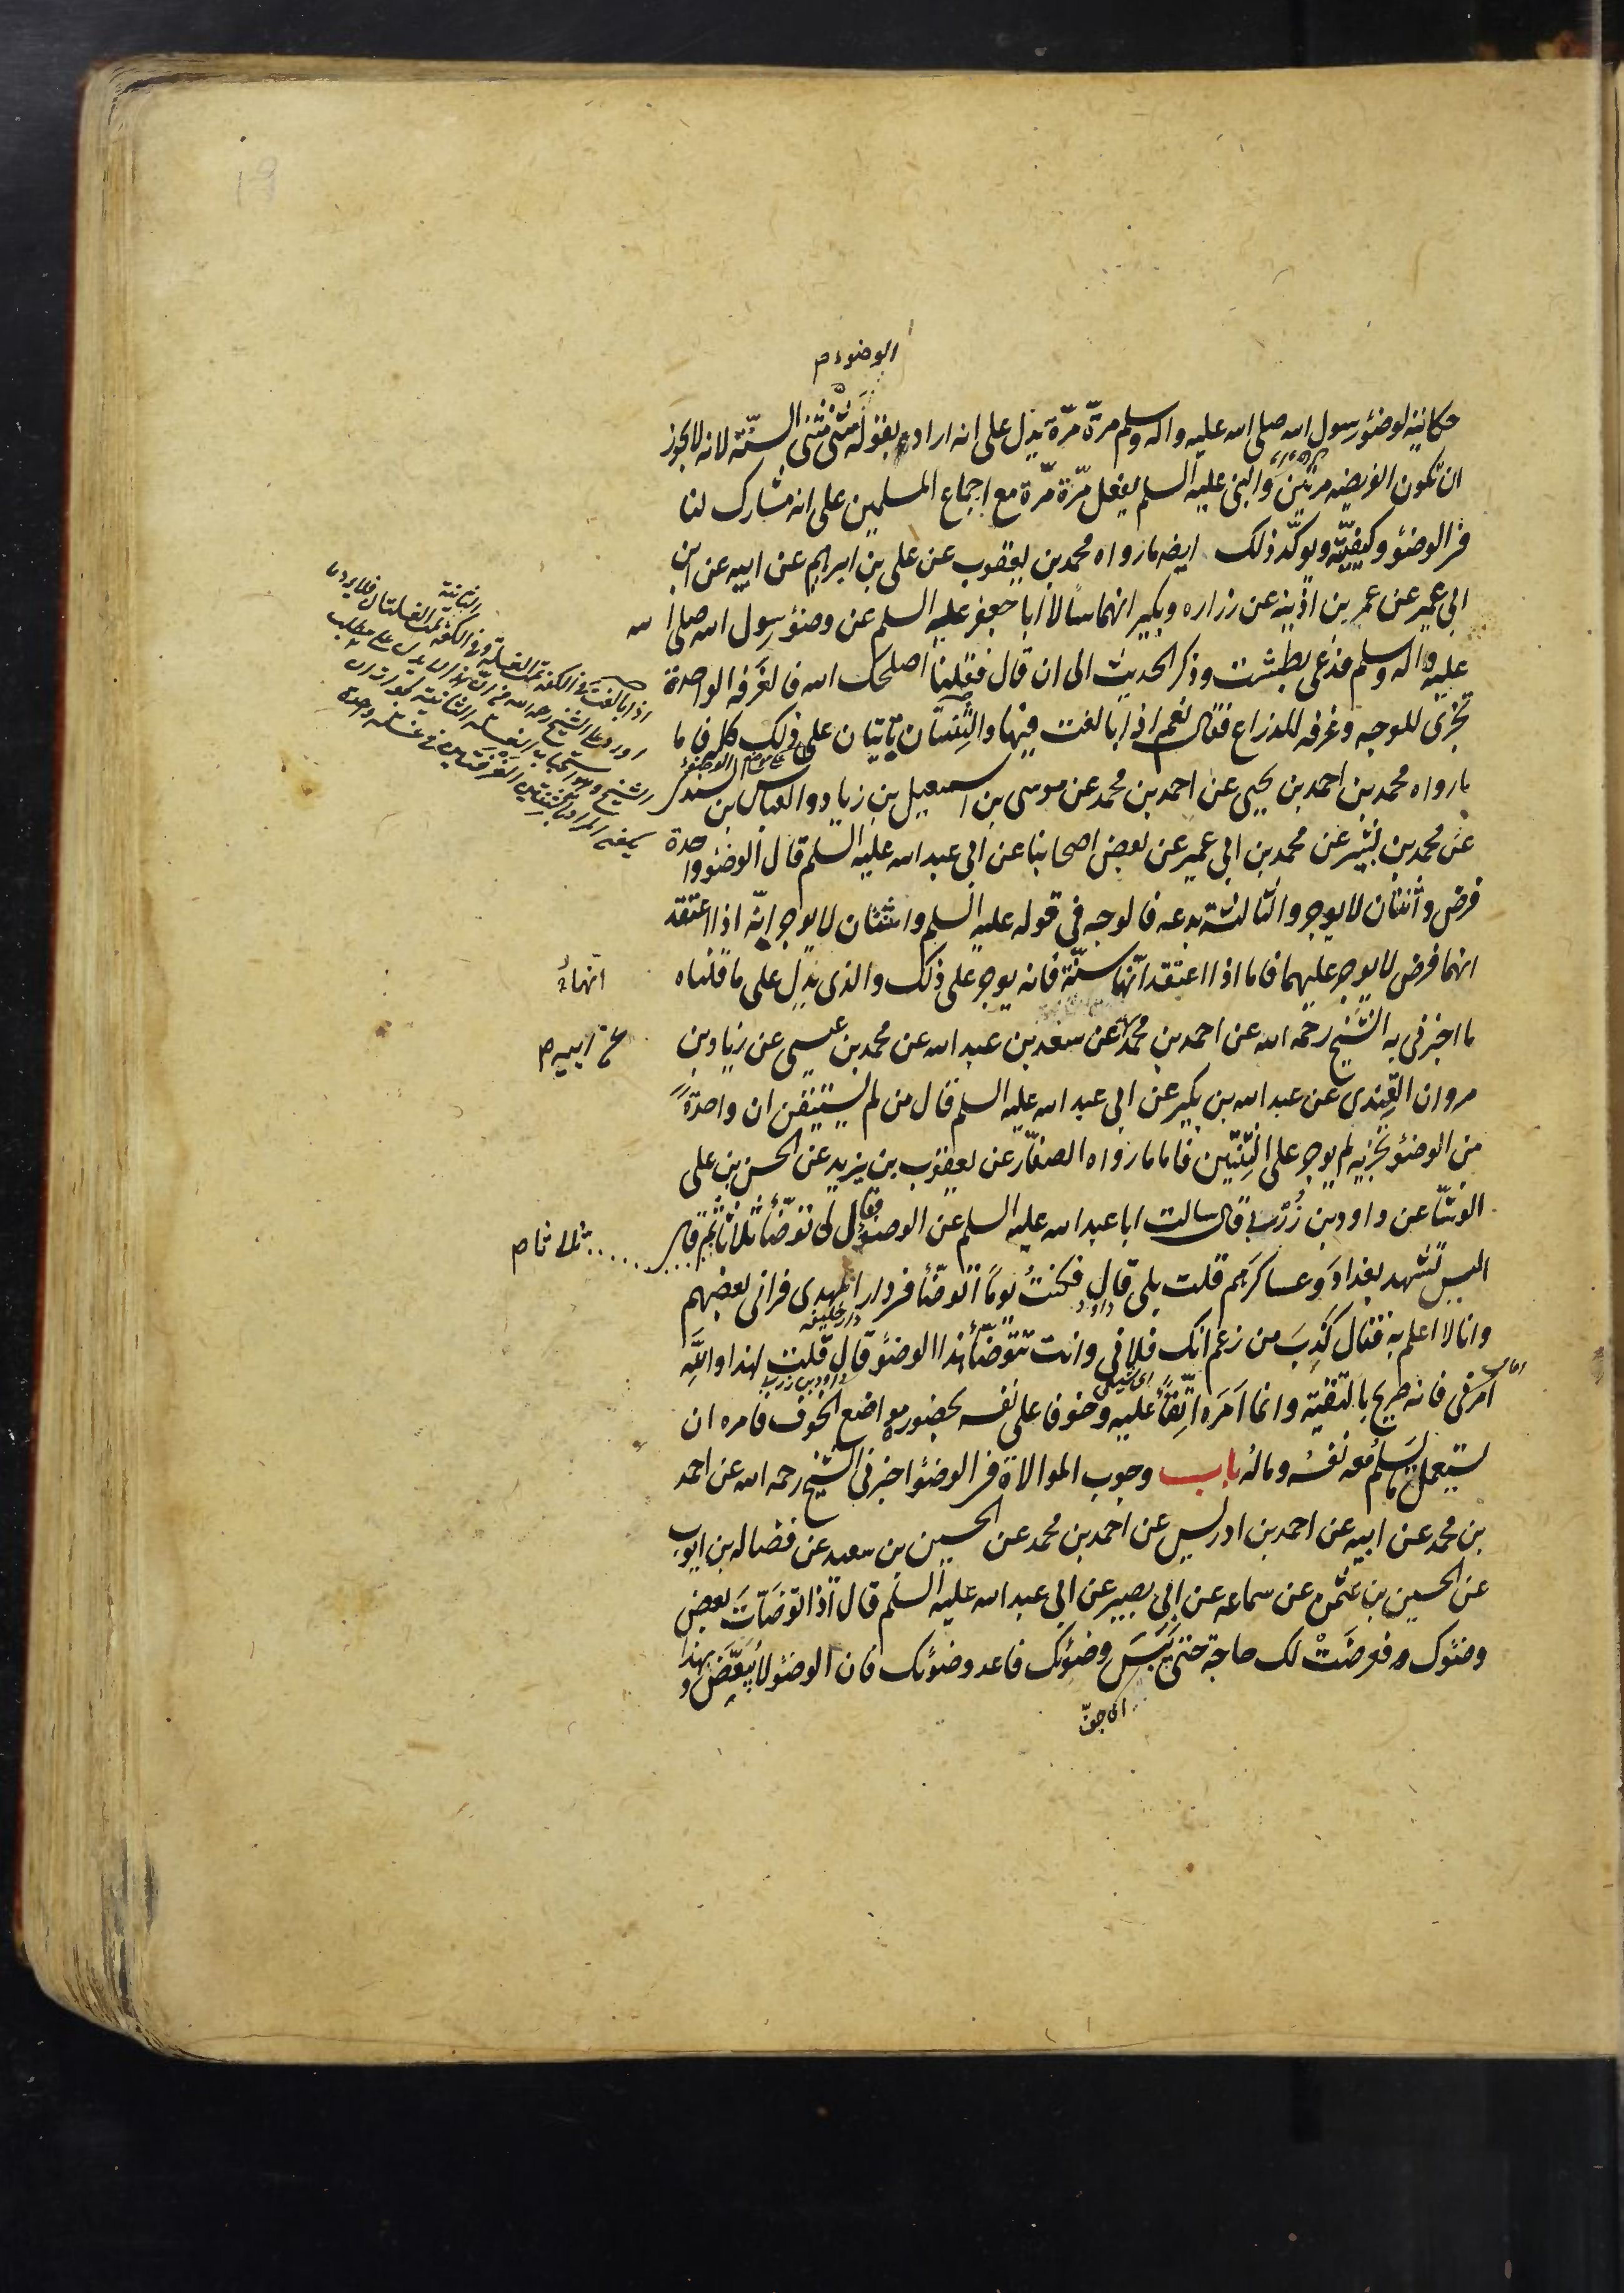 الوضوء م
حكايته لوضوء رسول الله صلى الله عليه واله وسلم مرّة مرّة يدل على انه اراد بقوله مثنى مثنى السنّة لانه لا يجوز
ان تكون الفريضه مرتين والنبى عليه السلم يفعل مرّة مرّة مع اجماع المسلمين على انه مشارك لنا
فى الوضوء وكيفيّته ويؤكّد ذلك ايضه ما رواه محمد بن يعقوب عن على بن ابرهيم عن ابيه عن ابن
ابى عمير عن عمر بن اذينه عن زراره وبكير انهما سالا ابا جعفر عليه السلم عن وضوء رسول الله صلى الله
عليه واله وسلم فدعى بطشت وذكر الحديث الى ان قال فقلنا اصلحك الله فالغرفه الواحدة
تجزى للوجه وغرفه للذراع فقال نعم اذا بالغت فيها والثنتان تاتيان على ذلك كله فاما
ما رواه محمد بن احمد بن يحيى عن احمد بن محمد عن موسى بن اسمعيل بن زياد والعباس بن السندى
عن محمد بن بشير عن محمد بن ابى عمير عن بعض اصحابنا عن ابى عبد الله عليه السلم قال الوضوء واحدة
فرض واثنتان لا يوجر والثالثة بدعه فالوجه فى قوله عليه السلم واثنتان لا يوجر انّه اذا اعتقد
انهما فرض لا يوجر عليهما فاما اذا اعتقد انّهما سنّة فانه يوجر على ذلك والذى يدل على ما قلناه
انّهما
ما اخبرنى به الشيخ رحمه الله عن احمد بن محمد عن سعد بن عبد الله عن محمد بن عيسى عن زياد بن
عن ابيه م
مروان القندى عن عبد الله بن بكير عن ابى عبد الله عليه السلم قال من لم يستيقن ان واحدةً
من الوضوء تجزيه لم يوجر على الثنتين فاما ما رواه الصفّار عن يعقوب بن يزيد عن الحسن بن على
الوشّا عن داود بن زُربى قال سالت ابا عبد الله عليه السلم عن الوضوء فقال لى توضّأ ثلاثا ثم قال
ثلثا ثلثا م
اليس تشهد بغدادَ وعساكرَهم قلت بلى قال فكنتُ يوماً اتوضّأ فى دار المهدى فرانى بعضهم
داود
دار خليفه
وانا لا اعلم به فقال كَذِبَ من زعم انك فلانى وانت تتوضّأ هذا الوضوء قال فقلت لهذا واللَّهِ
داود بن زربى
امرنى فانه صريح بالتقيّه وانما اَمَره اتّقاءً عليه وخوفا على نفسه بحضور مواضع الخوف فامره ان
يستعمل ما يَسلَمُ معه نفسُه وماله باب وجوب الموالاة فى الوضوء اخبرنى الشيخ رحمه الله عن احمد
بن محمد عن ابيه عن احمد بن ادريس عن احمد بن محمد عن الحسين بن سعيد عن فضاله بن ايوب
عن الحسين بن عثمن عن سماعه عن ابى بصير عن ابى عبد الله عليه السلم قال اذا توضّاتَ بعض
وضوئك فعرضَتْ لك حاجة حتى يَبَسَ وضوئك فاعد وضوئك فان الوضوء لا يُبَعَّض وبهذا
اى جفّ